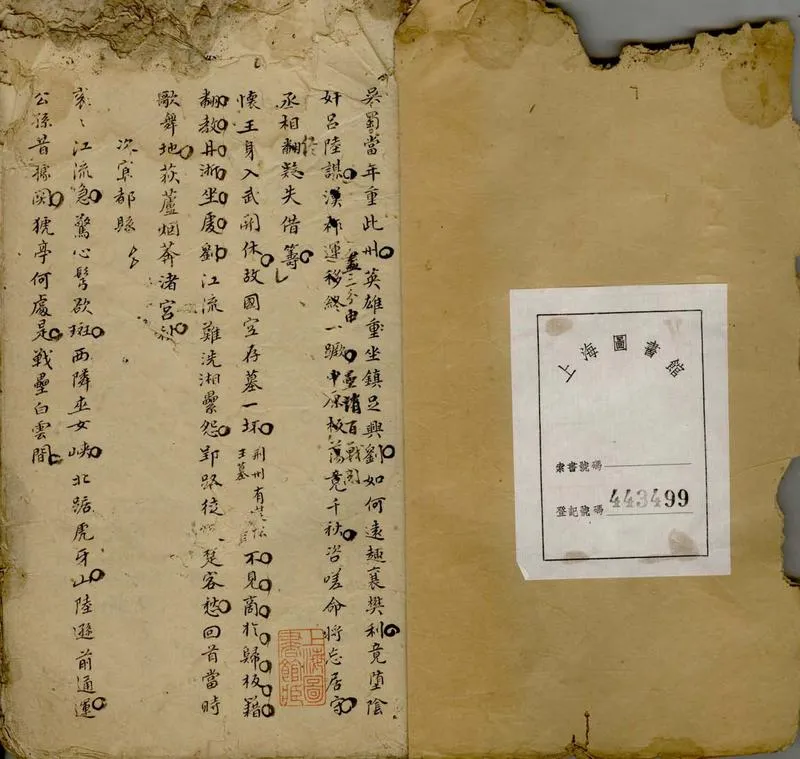 上海圖書館
索書號碼
登記號碼 443499
吳蜀當年重此州英雄坐鎮足興劉如何遠趨襄樊利竟墮陰
奸呂陸謀漢祚運移終一蹶中原板蕩竟千秋咨嗟命將忘居守
丞相翻疑失借籌
懷王身入武關休故國空存墓一坏
荊州有楚懷
王墓
不見商於歸板籍
翻教丹淅坐虔劉江流難洗湘纍怨郢路徒楚客愁回首當時
歌舞地荻蘆烟莽渚宮秋
次宜都縣
滾〻江流急驚心鬢欲斑西隣巫女峽北踞虎牙山陸遜前通運
公孫昔據關猇亭何處是戰壘白雲間
上海圖
書館